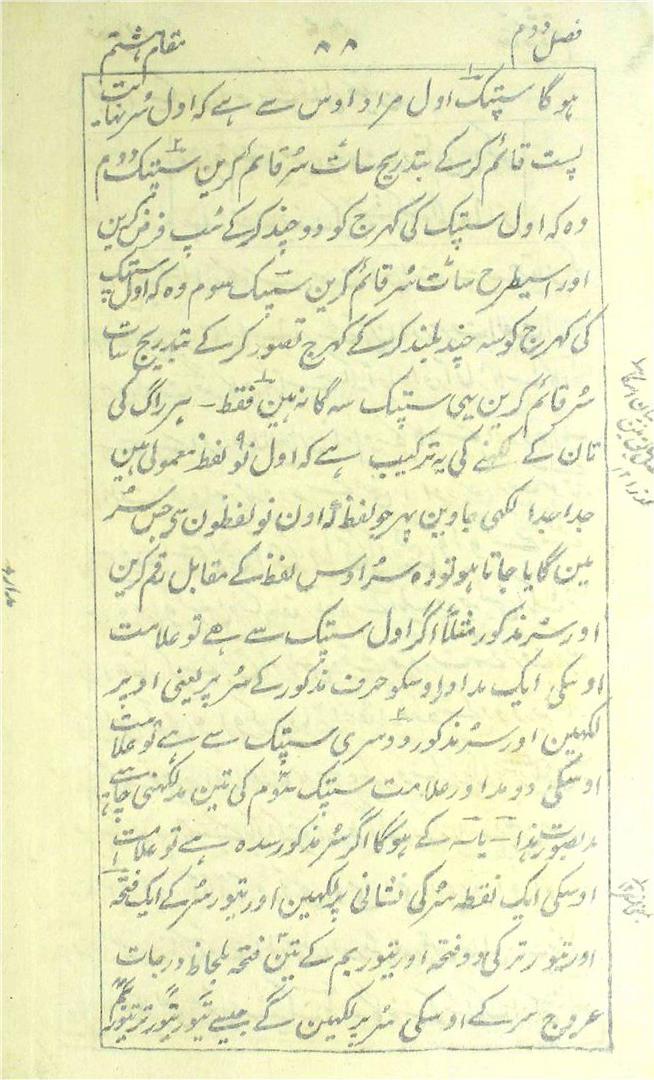 فصل دوم ۸۸ مقام ہشتم
ہوگا سپتک اول مراد اوس سے ہے کہ اول سُر نہایت
پست قائم کرکے بتدریج سات سُر قائم کرین سپتک دوم
وہ کہ اول سپتک کی کہرج کو دو چند کرکے ٹیپ فرض کرین
اور اسیطرح سات سُر قائم کرین سپتک سوم وہ کہ اول سپتک
کی کہرج کو سہ چند بلند کرکے کہرج تصور کرکے بتدریج سات
سُر قائم کرین یہی سپتک سہ گانہ ہین فقط ۔ ہر راگ کی
تان کے لکھنے کی یہ ترکیب ہے کہ اول نو لفظ معمولی ہین
جدا جدا لکھی جاوین پہر جو لفظ اون نو لفظون سے جس سُر
مین گایا جاتا ہو تو وہ سُر اوس لفظ کے مقابل رقم کرین
اور سُر مذکور مثلاً اگر اول سپتک سے ہے تو علامت
اوسکی ایک مد اوسکو حرف مذکور کے سُر پر یعنی اوپر
لکھین اور سُر مذکور دوسری سپتک سے ہے تو علامت
اوسکی دو مد اور علامت سپتک سوم کی تین مد لکھنی چاہیے
مد بصورت ہذا کے ہوگا اگر سُر مذکور سدہ ہے تو علامت
اوسکی ایک نقطہ سُر کی نشانی پر لکھین اور تیور سُر کے ایک فتحہ
اور تیور تر کی دو فتحہ اور تیور تم کے تین فتحہ بلحاظ درجات
عروج سر کے اوسکی سُر پر لکھین گے جیسے تیور تیور تر تیور تم